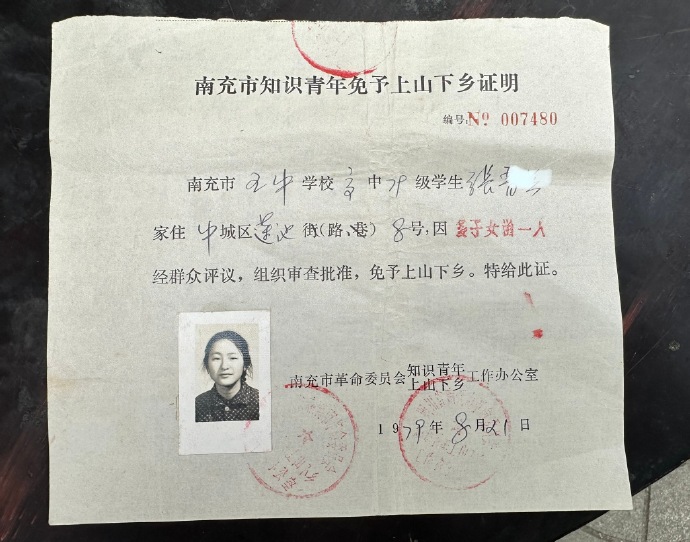 南充市知识青年免予上山下乡证明
编号:No 007480
南充市 五中 学校 高中79级学生 张
家住 中城区莲池街(路、巷) 8号,因 多子女留一人
经群众评议,组织审查批准,免予上山下乡。特给此证。
南充市革命委员会知识青年上山下乡工作办公室
1979年8月21日